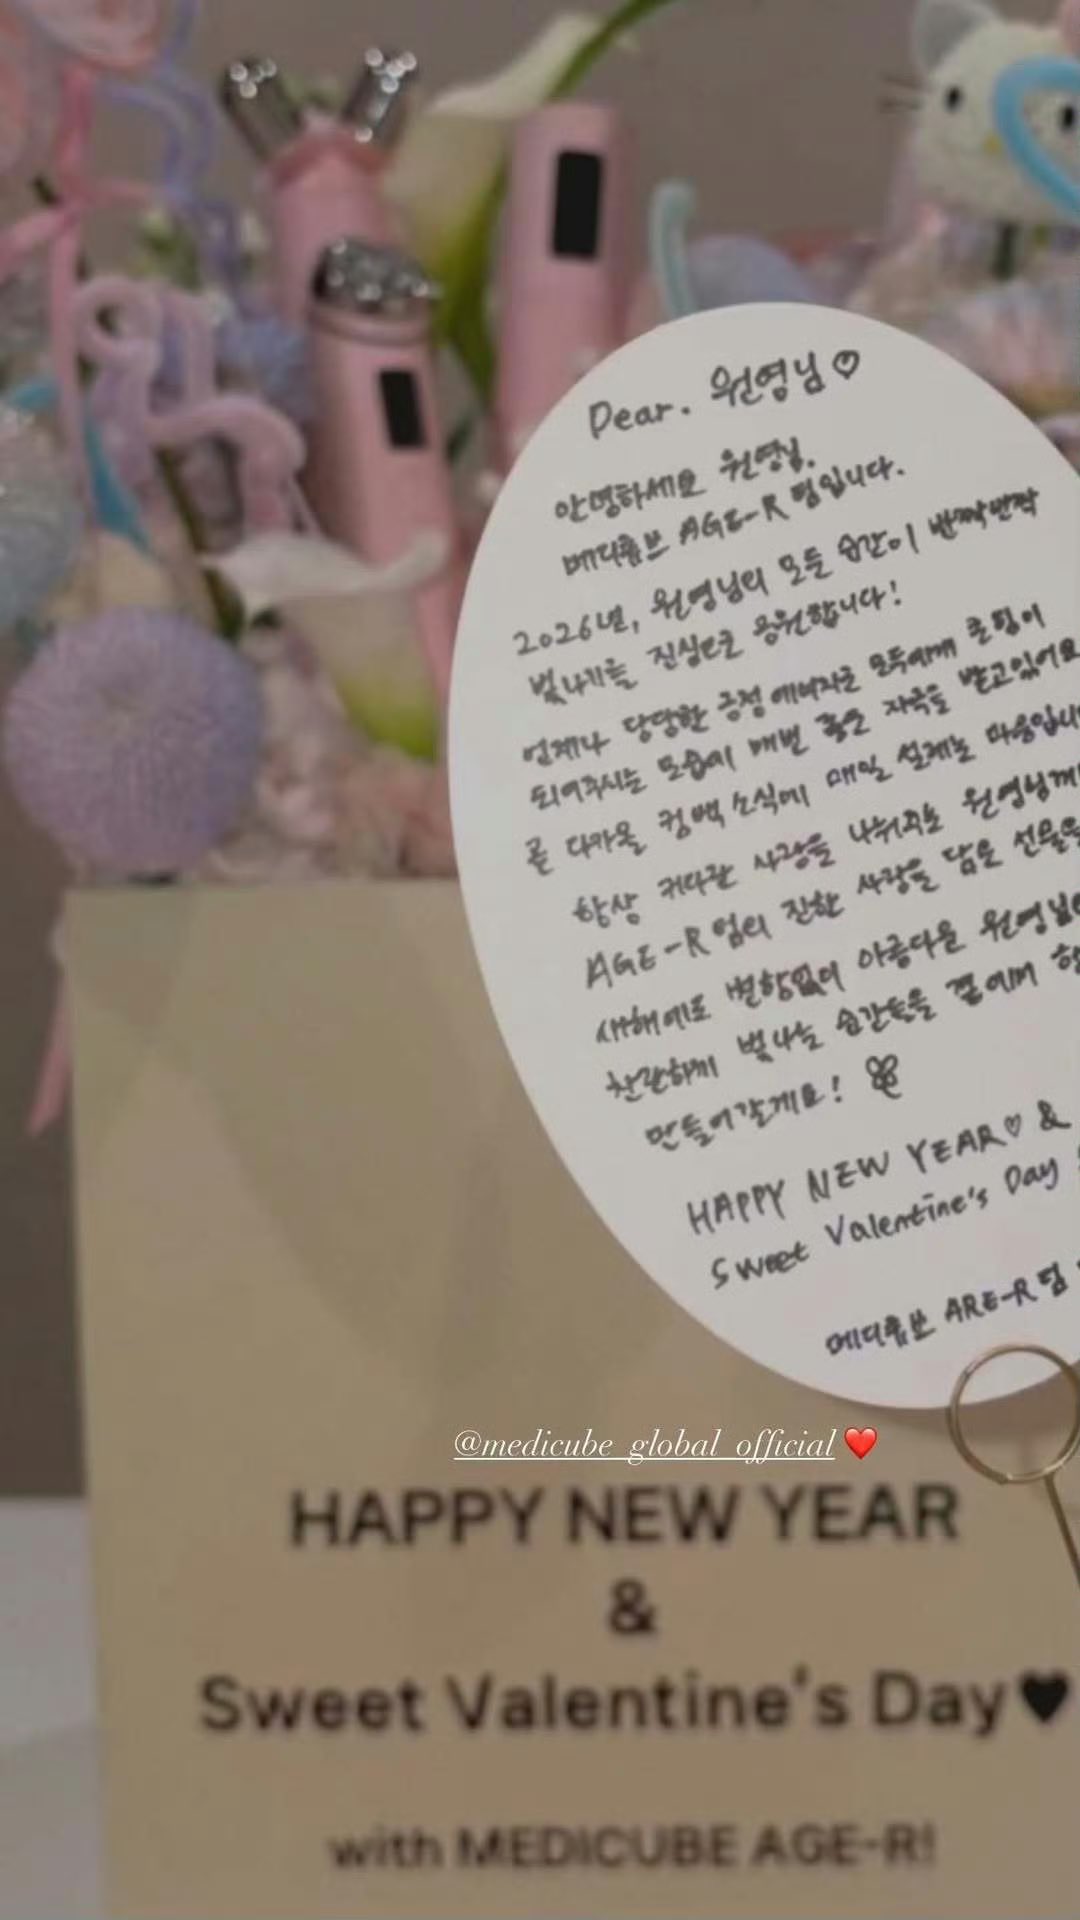 Dear. 원영님♡
안녕하세요 원영님.
메디큐브 AGE-R 팀입니다.
2026년, 원영님의 모든 순간이 반짝반짝
빛나기를 진심으로 응원합니다!
언제나 당당한 긍정 에너지로 모두에게 큰 힘이
되어주시는 모습에 매번 좋은 자극을 받고있어요
곧 다가올 컴백 소식에 매일 설레는 마음입니
항상 커다란 사랑을 나눠주는 원영님께
AGE-R 팀의 진한 사랑을 담은 선물을
새해에도 변함없이 아름다운 원영님의
찬란하게 빛나는 순간들을 곁에서
만들어갈게요!
HAPPY NEW YEAR♡ &
Sweet Valentine's Day
메디큐브 ARE-R 팀
@medicube_global_official ❤️
HAPPY NEW YEAR
&
Sweet Valentine's Day♥
with MEDICUBE AGE-R!